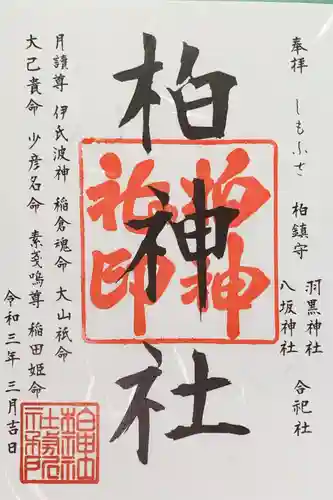 奉拝 しもふさ 柏鎮守
羽黒神社
八坂神社 合祀社
柏神社
柏神
社印
月讀尊 伊氐波神 稲倉魂命 大山祇命
大己貴命 少彦名命 素戔嗚尊 稲田姫命
令和三年 三月吉日
柏神社
社務所